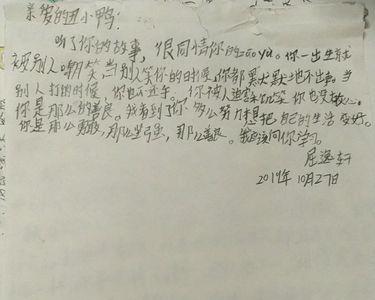 亲爱的丑小鸭:
听了你的故事,很同情你的zāo yù。你一出生就
被别人嘲笑,当别人笑你的时候,你都默默地不出声。当
别人打的时候,你也不还手。你被人迫害、嘲笑你也没放心。
你是那么的善良。我看到你努力想把自己的生活变好。
你是那么勇敢,那么坚强,那么善良。我应该向你学习。
屈逸轩
2019年10月27日